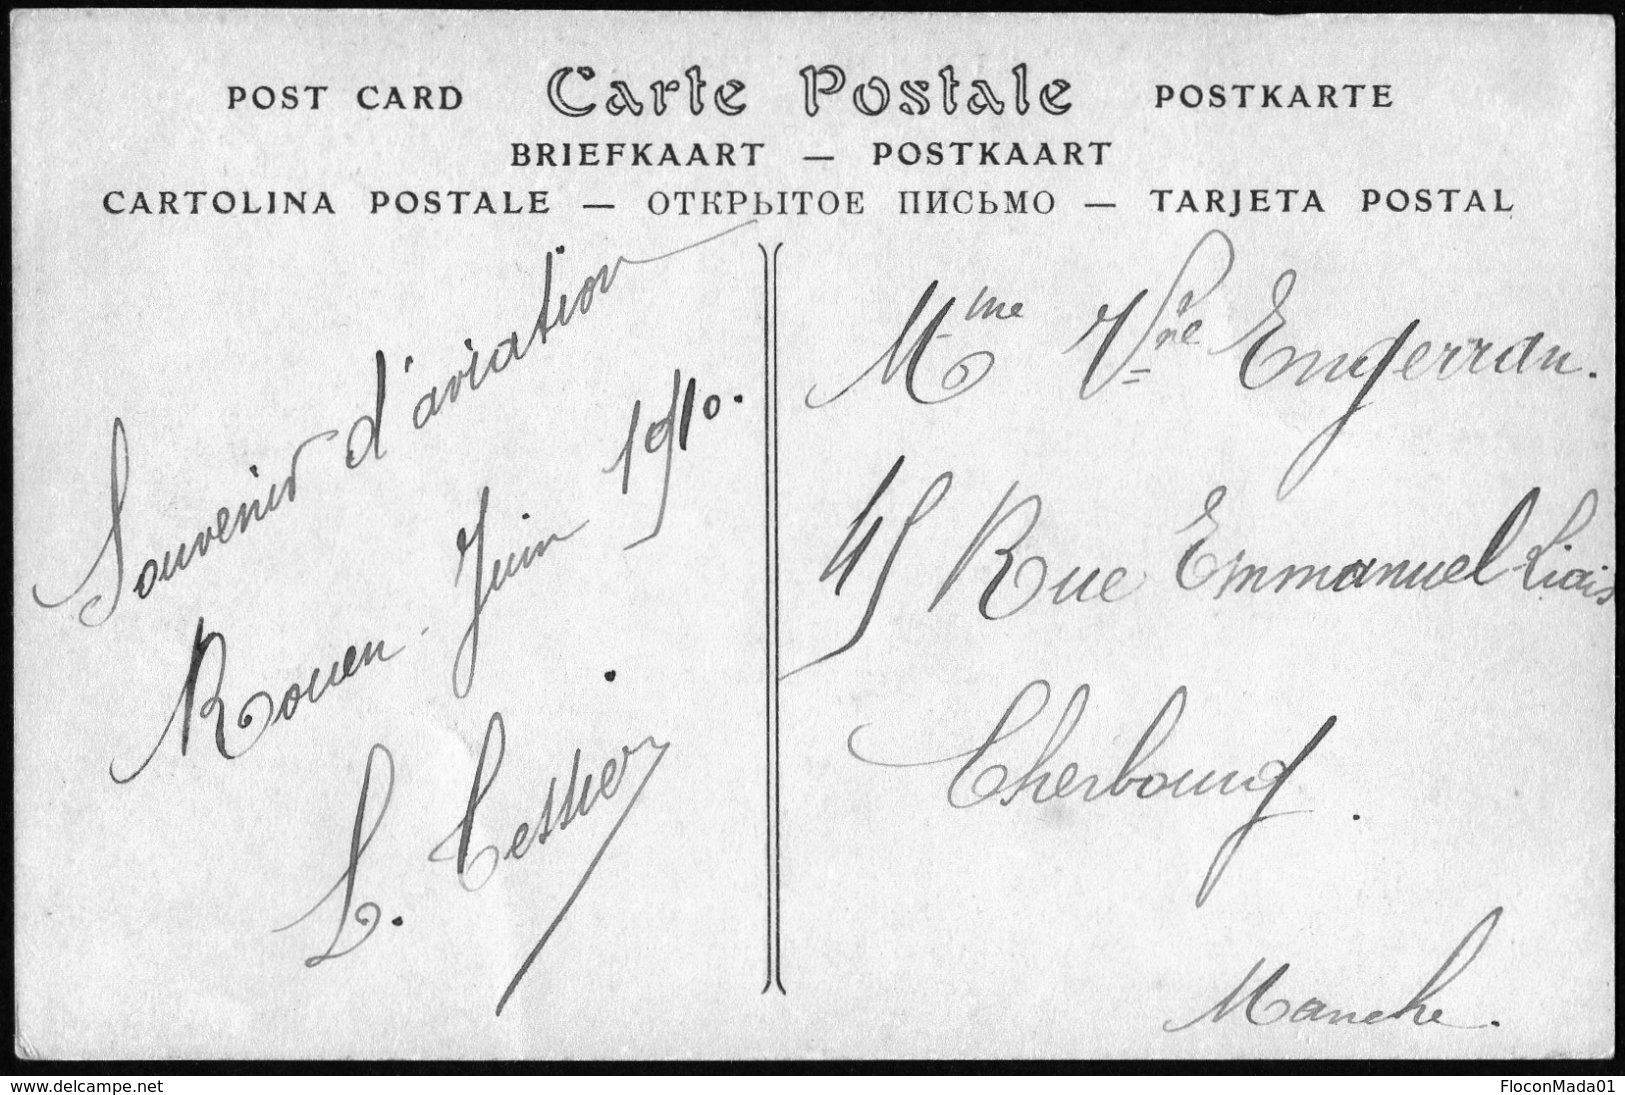 POST CARD Carte Postale POSTKARTE
BRIEFKAART — POSTKAART
CARTOLINA POSTALE — ОТКРЫТОЕ ПИСЬМО — TARJETA POSTAL
Souvenir d'aviation
Rouen - Juin 1910.
L. Tessier
Mme Vve Engerran.
45 Rue Emmanuel Liais
Cherbourg.
Manche.
www.delcampe.net
FloconMada01